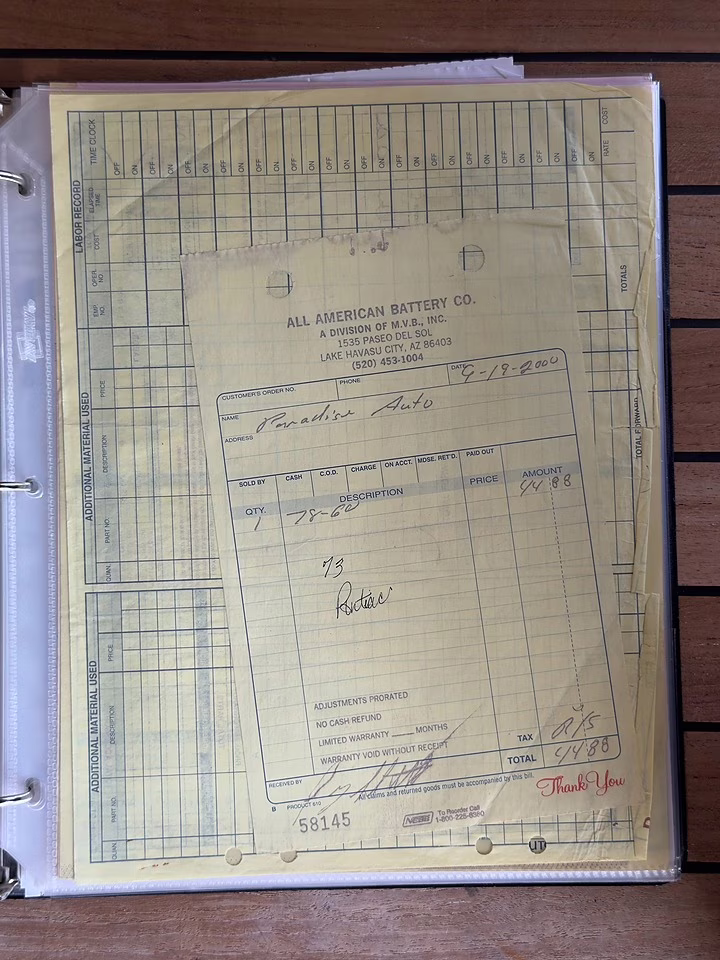 ALL AMERICAN BATTERY CO.
A DIVISION OF M.V.B., INC.
1535 PASEO DEL SOL
LAKE HAVASU CITY, AZ 86403
(520) 453-1004
CUSTOMER'S ORDER NO. PHONE DATE 9-19-2000
NAME Paradise Auto
ADDRESS
SOLD BY CASH C.O.D. CHARGE ON ACCT. MDSE. RET'D. PAID OUT
QTY. DESCRIPTION PRICE AMOUNT
1 78-60 44 88
73
Pontiac
ADJUSTMENTS PRORATED
NO CASH REFUND
LIMITED WARRANTY ____ MONTHS
WARRANTY VOID WITHOUT RECEIPT
TAX R/S
TOTAL 44 88
RECEIVED BY
All claims and returned goods must be accompanied by this bill.
Thank You
B PRODUCT 610
58145
NEBS To Reorder Call
1-800-225-6380
LABOR RECORD
TIME CLOCK
OFF ON OFF ON OFF ON OFF ON OFF ON OFF ON OFF ON OFF ON OFF ON OFF ON OFF ON OFF ON OFF ON OFF ON
ELAPSED TIME
COST
OPER. NO
EMP. NO
RATE COST
TOTALS
ADDITIONAL MATERIAL USED
QUAN. PART NO. DESCRIPTION PRICE
TOTAL FORWARD
ADDITIONAL MATERIAL USED
QUAN. PART NO. DESCRIPTION PRICE